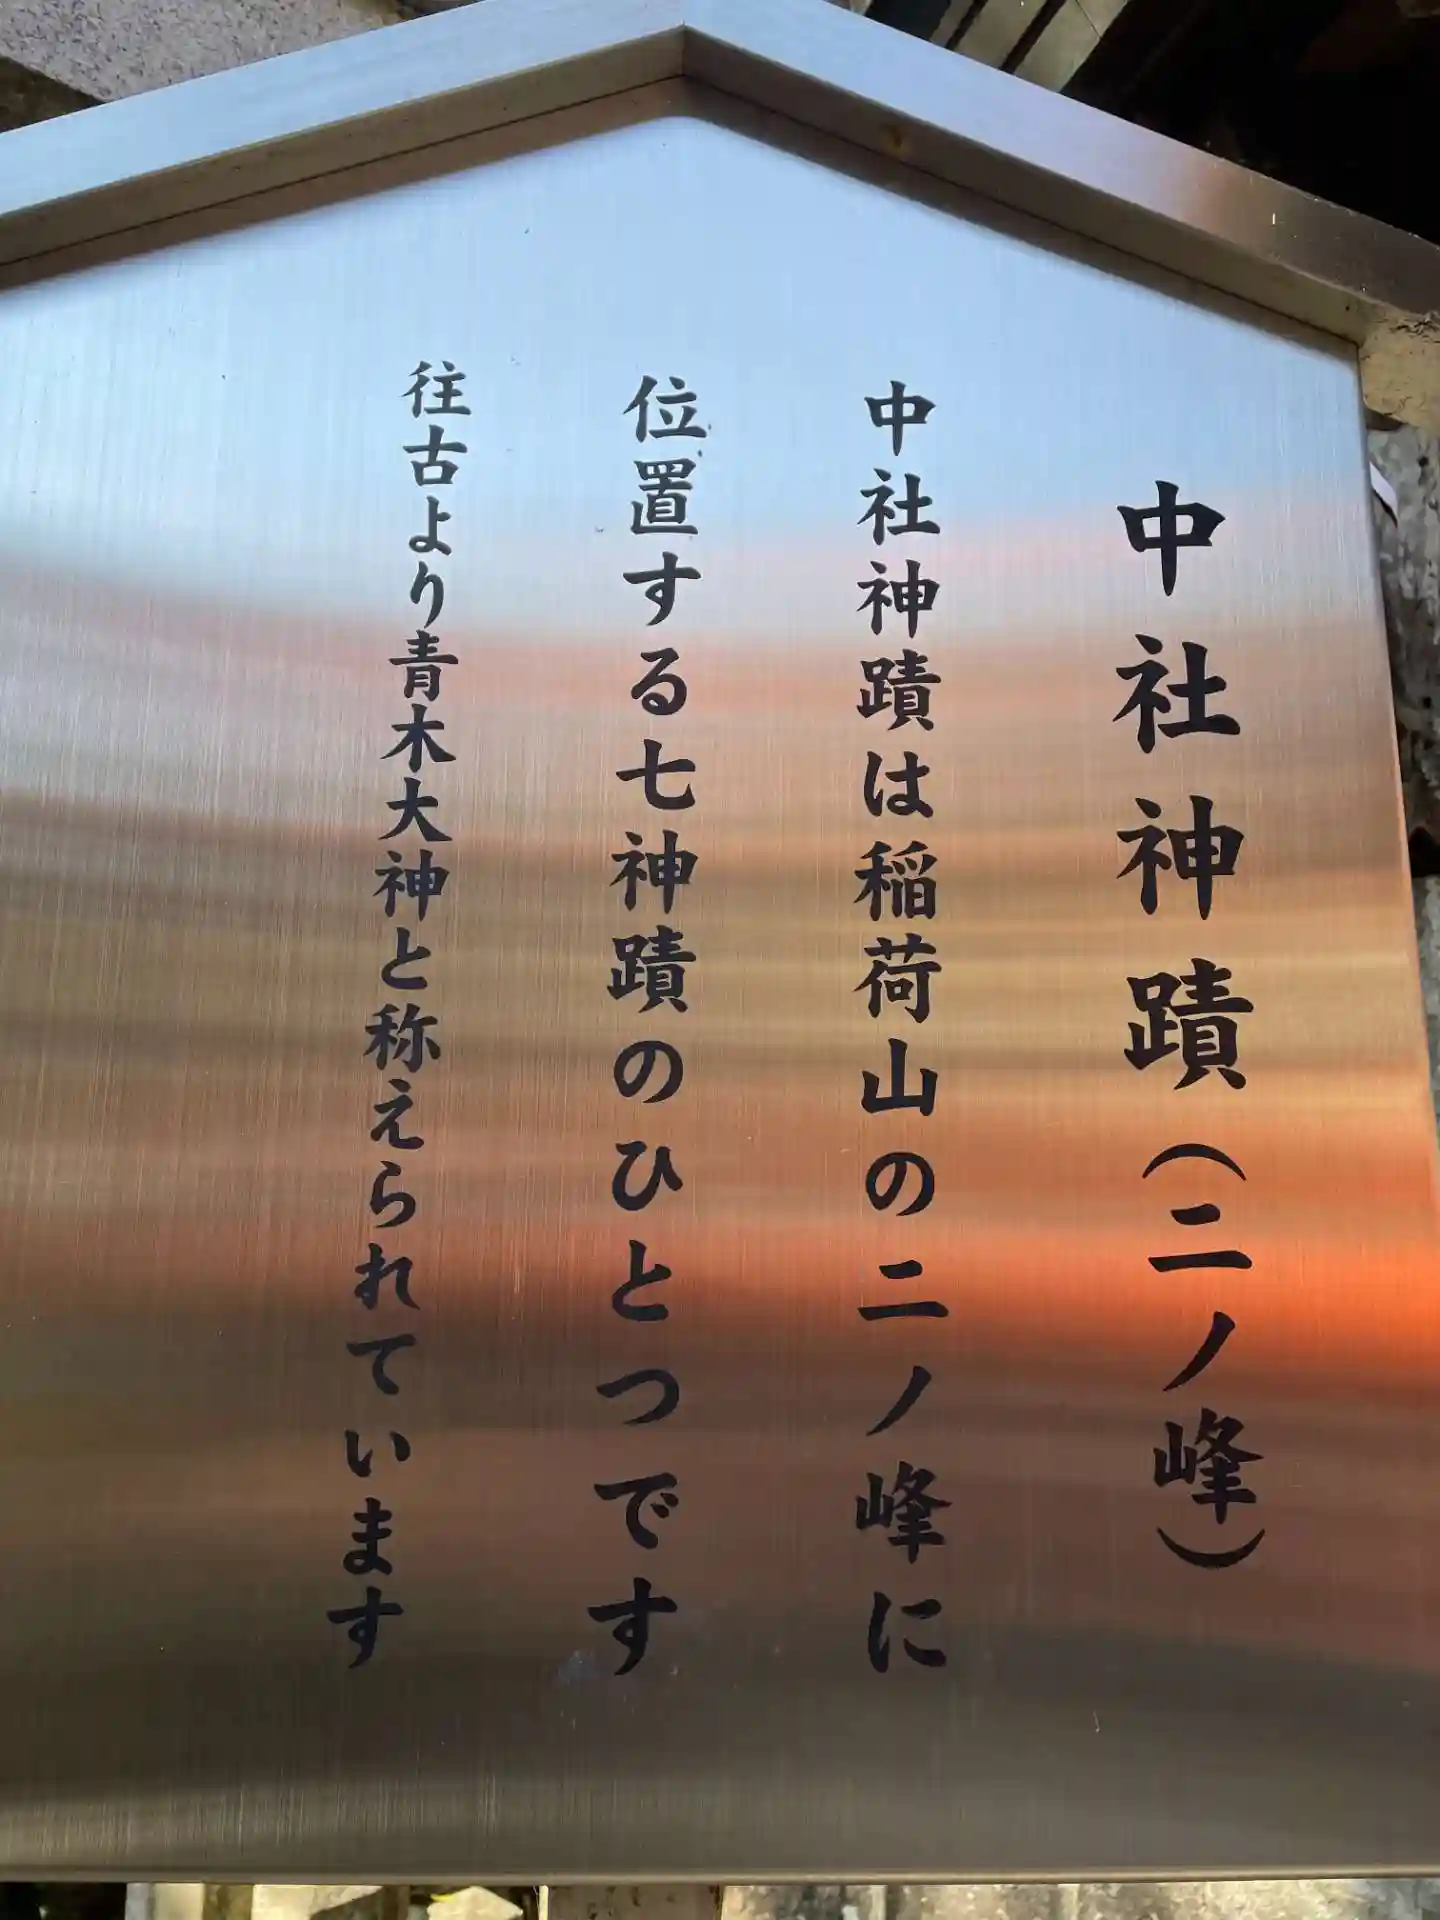 中社神蹟(二ノ峰)
中社神蹟は稲荷山の二ノ峰に
位置する七神蹟のひとつです
往古より青木大神と称えられています